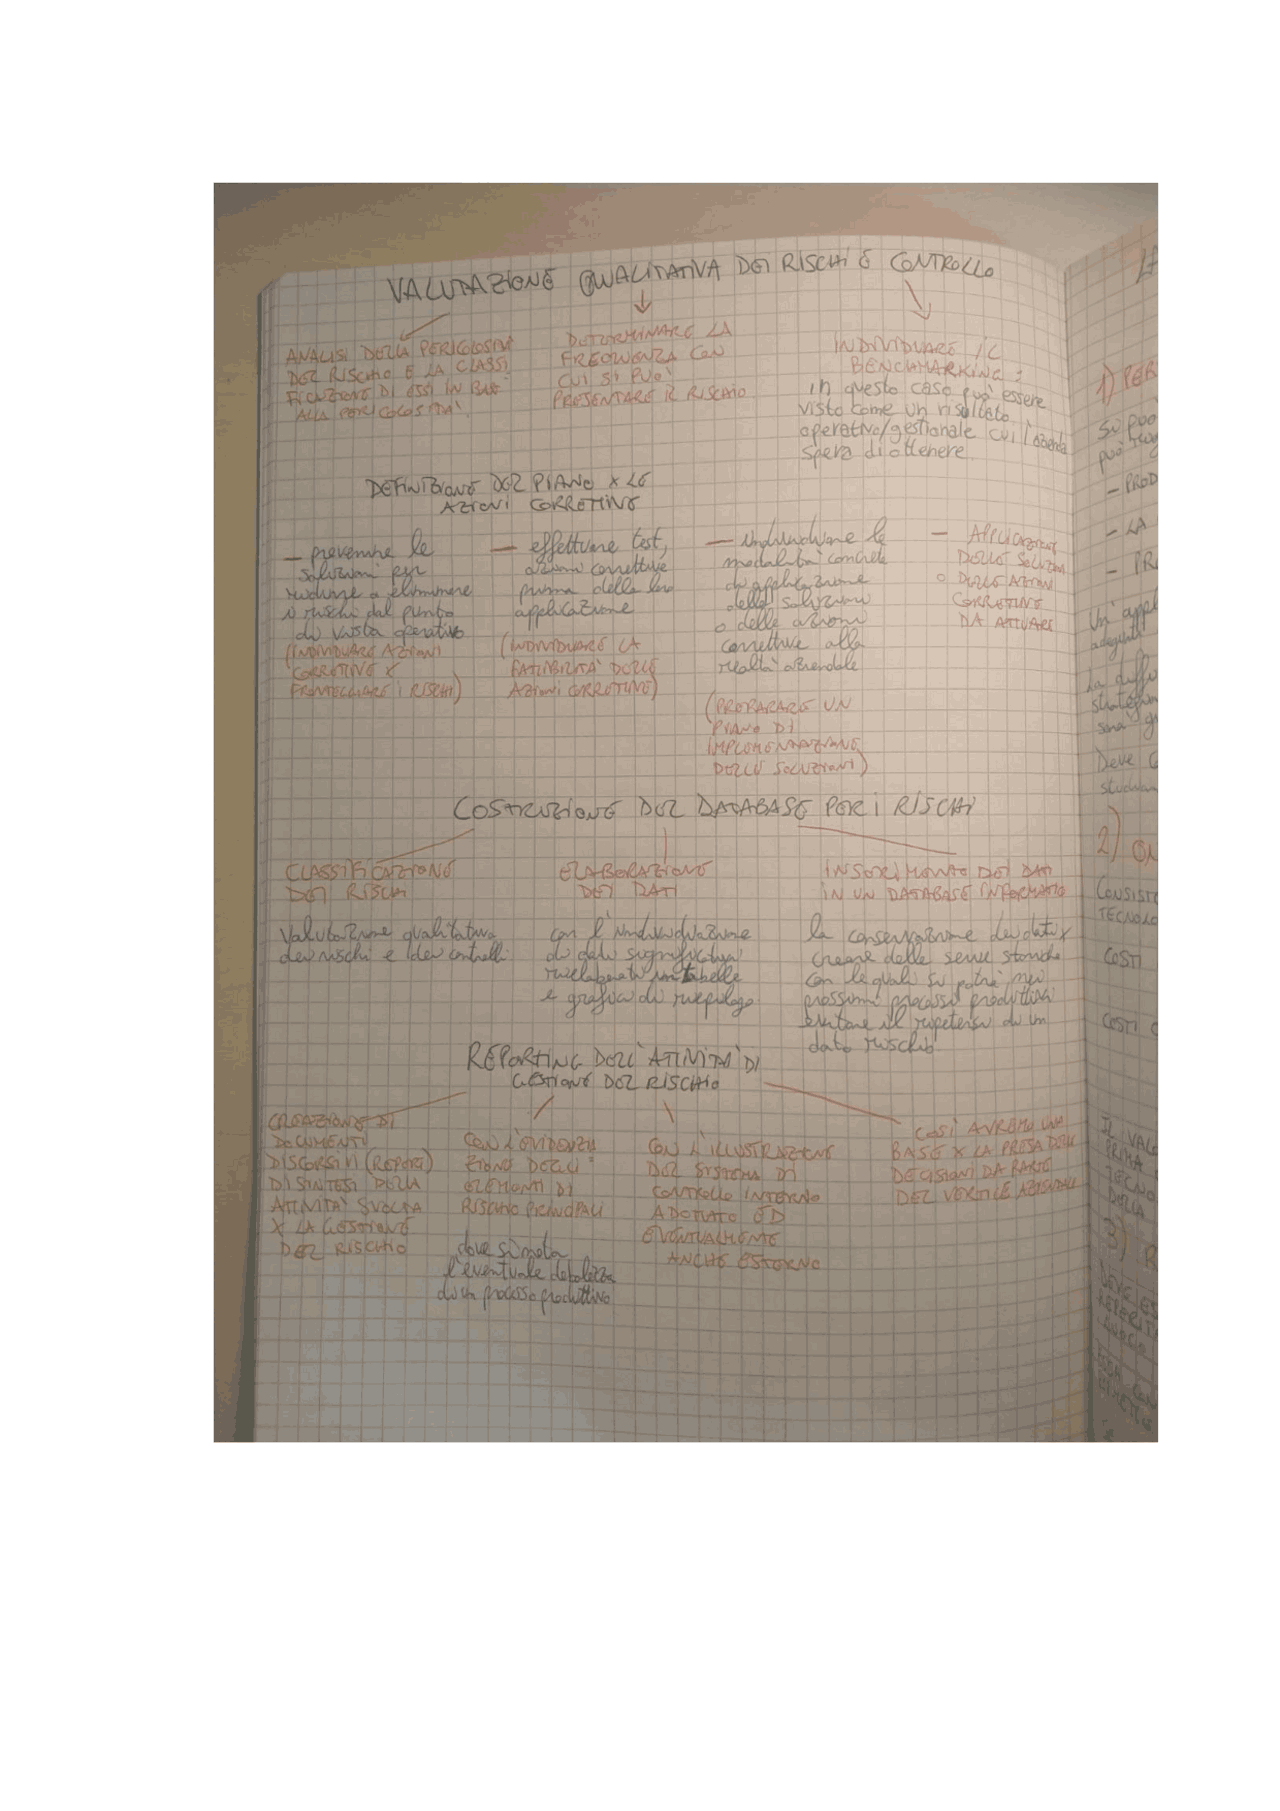 VALUTAZIONE QUALITATIVA DEI RISCHI E CONTROLLO
ANALISI DELLA PERICOLOSITÀ
DEL RISCHIO E LA CLASSI
FICAZIONE DI ESSI IN BASE
ALLA PERICOLOSITÀ
DETERMINARE LA
FREQUENZA CON
CUI SI PUO'
PRESENTARE IL RISCHIO
INDIVIDUARE IL
BENCHMARKING:
in questo caso può essere
visto come un risultato
operativo/gestionale cui l'azienda
spera di ottenere
DEFINIZIONE DEL PIANO X LE
AZIONI CORRETTIVE
— prevenire le
soluzioni per
ridurre o eliminare
i rischi dal punto
di vista operativo
(INDIVIDUARE AZIONI
CORRETTIVE X
FRONTEGGIARE I RISCHI)
— effettuare test,
azioni correttive
prima della loro
applicazione
(INDIVIDUARE LA
FATTIBILITÀ DELLE
AZIONI CORRETTIVE)
— individuare le
modalità concrete
di applicazione
delle soluzioni
o delle azioni
correttive alla
realtà aziendale
(PREPARARE UN
PIANO DI
IMPLEMENTAZIONE
DELLE SOLUZIONI)
— APPLICAZIONE
DELLE SOLUZIONI
O DELLE AZIONI
CORRETTIVE
DA ATTUARE
COSTRUZIONE DEL DATABASE PER I RISCHI
CLASSIFICAZIONE
DEI RISCHI
Valutazione qualitativa
dei rischi e dei controlli
ELABORAZIONE
DEI DATI
con l'individuazione
di dati significativi
rielaborati in tabelle
e grafici di riepilogo
INSERIMENTO DEI DATI
IN UN DATABASE INFORMATICO
la conservazione dei dati x
creare delle serie storiche
con le quali si potrà nei
prossimi processi produttivi
evitare il ripetersi di un
dato rischio
REPORTING DELL'ATTIVITÀ DI
GESTIONE DEL RISCHIO
CREAZIONE DI
DOCUMENTI
DISCORSIVI (REPORT)
DI SINTESI DELLA
ATTIVITÀ SVOLTA
X LA GESTIONE
DEL RISCHIO
CON L'EVIDENZIA
ZIONE DEGLI
ELEMENTI DI
RISCHIO PRINCIPALI
dove si nota
l'eventuale debolezza
di un processo produttivo
CON L'ILLUSTRAZIONE
DEL SISTEMA DI
CONTROLLO INTERNO
ADOTTATO ED
EVENTUALMENTE
ANCHE ESTERNO
COSÌ AVREMO UNA
BASE X LA PRESA DELLE
DECISIONI DA PARTE
DEL VERTICE AZIENDALE
1) PER
Si può
può
- PROD
- LA
- PR
Un'appl
Deve
2)
CONSISTE
TECNOLO
COSTI
COSTI
IL VALO
PRIMA
TECNO
DELLA
3) R
DEVE ES